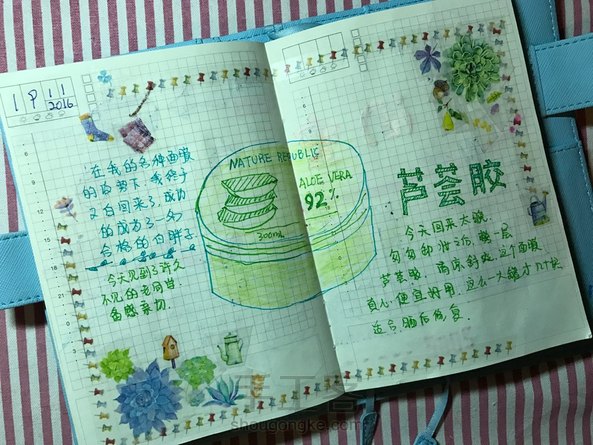 1 P 11
2016
在我的各种面膜
的攻势下 我终于
又白回来了 成功
的成为了一名
合格的白胖子
今天见到了许久
不见的老同学
备感亲切.
NATURE REPUBLIC
ALOE VERA
92%
300mL
芦荟胶
今天回来太晚.
匆匆卸 敷一层
芦荟胶 这个面膜
真心便宜好用. 这么一大罐才几十块
适合晒后修复.
shougongkei.com